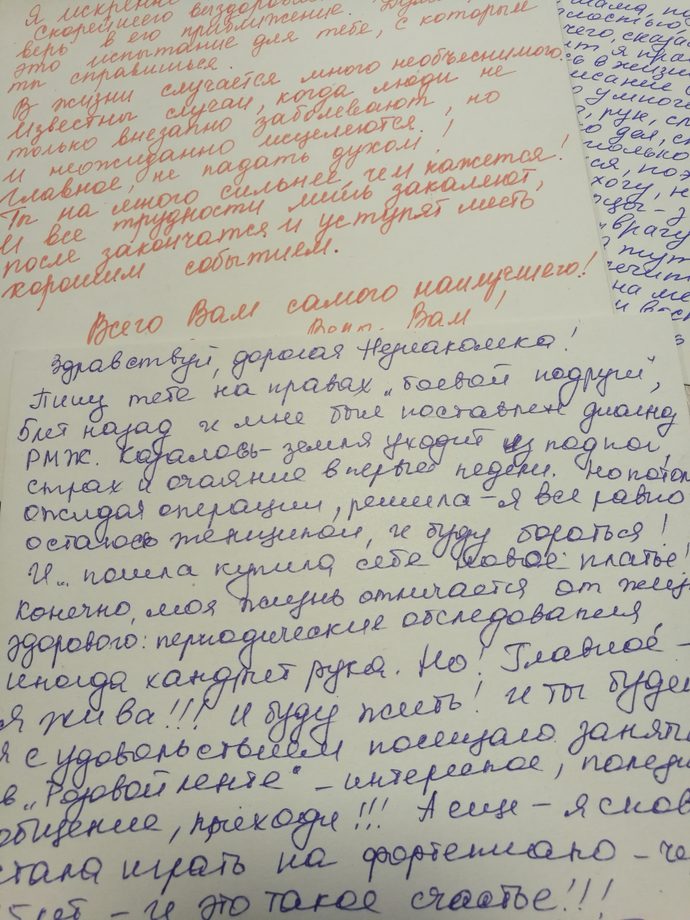 Я искренне
скорейшего выздоровл
верь в его приближение.
это испытание для тебе, с которым
ты справишься.
В жизни случается много необъяснимого.
Известны случаи, когда люди не
только внезапно заболевают, но
и неожиданно исцеляются.
Главное, не падать духом!
Ты на много сильнее, чем кажется!
И все трудности лишь закаляют,
после закончатся и уступят место
хорошим событием.
Всего Вам самого наилучшего!
Вам!
мама, по
чего, сказа
я пра
в жизни
писание
умного
рук, сп
дел, сп
ся, поэ
хогу, н
врагу
пут
ечит
на ме
и
Здравствуй, дорогая Незнакомка!
Пишу тебе на правах „боевой подруги",
6 лет назад и мне был поставлен диагноз
РМЖ. Казалось – земля уходит из под ног,
страх и отчаяние в первые недели. Но пото
ожидая операции, решила – я все равно
остаюсь женщиной, и буду бороться!
И... пошла купила себе новое платье!
Конечно, моя жизнь отличается от жиз
здорового: периодические обследования,
иногда хандрит рука. Но! Главное –
я жива!!! И буду жить! И ты буде
я с удовольствием посещаю заняти
в „Розовой ленте" – интересное, полезн
общение, приходи!!! А еще – я снов
стала играть на фортепиано – че
лет – и это такое счастье!!!